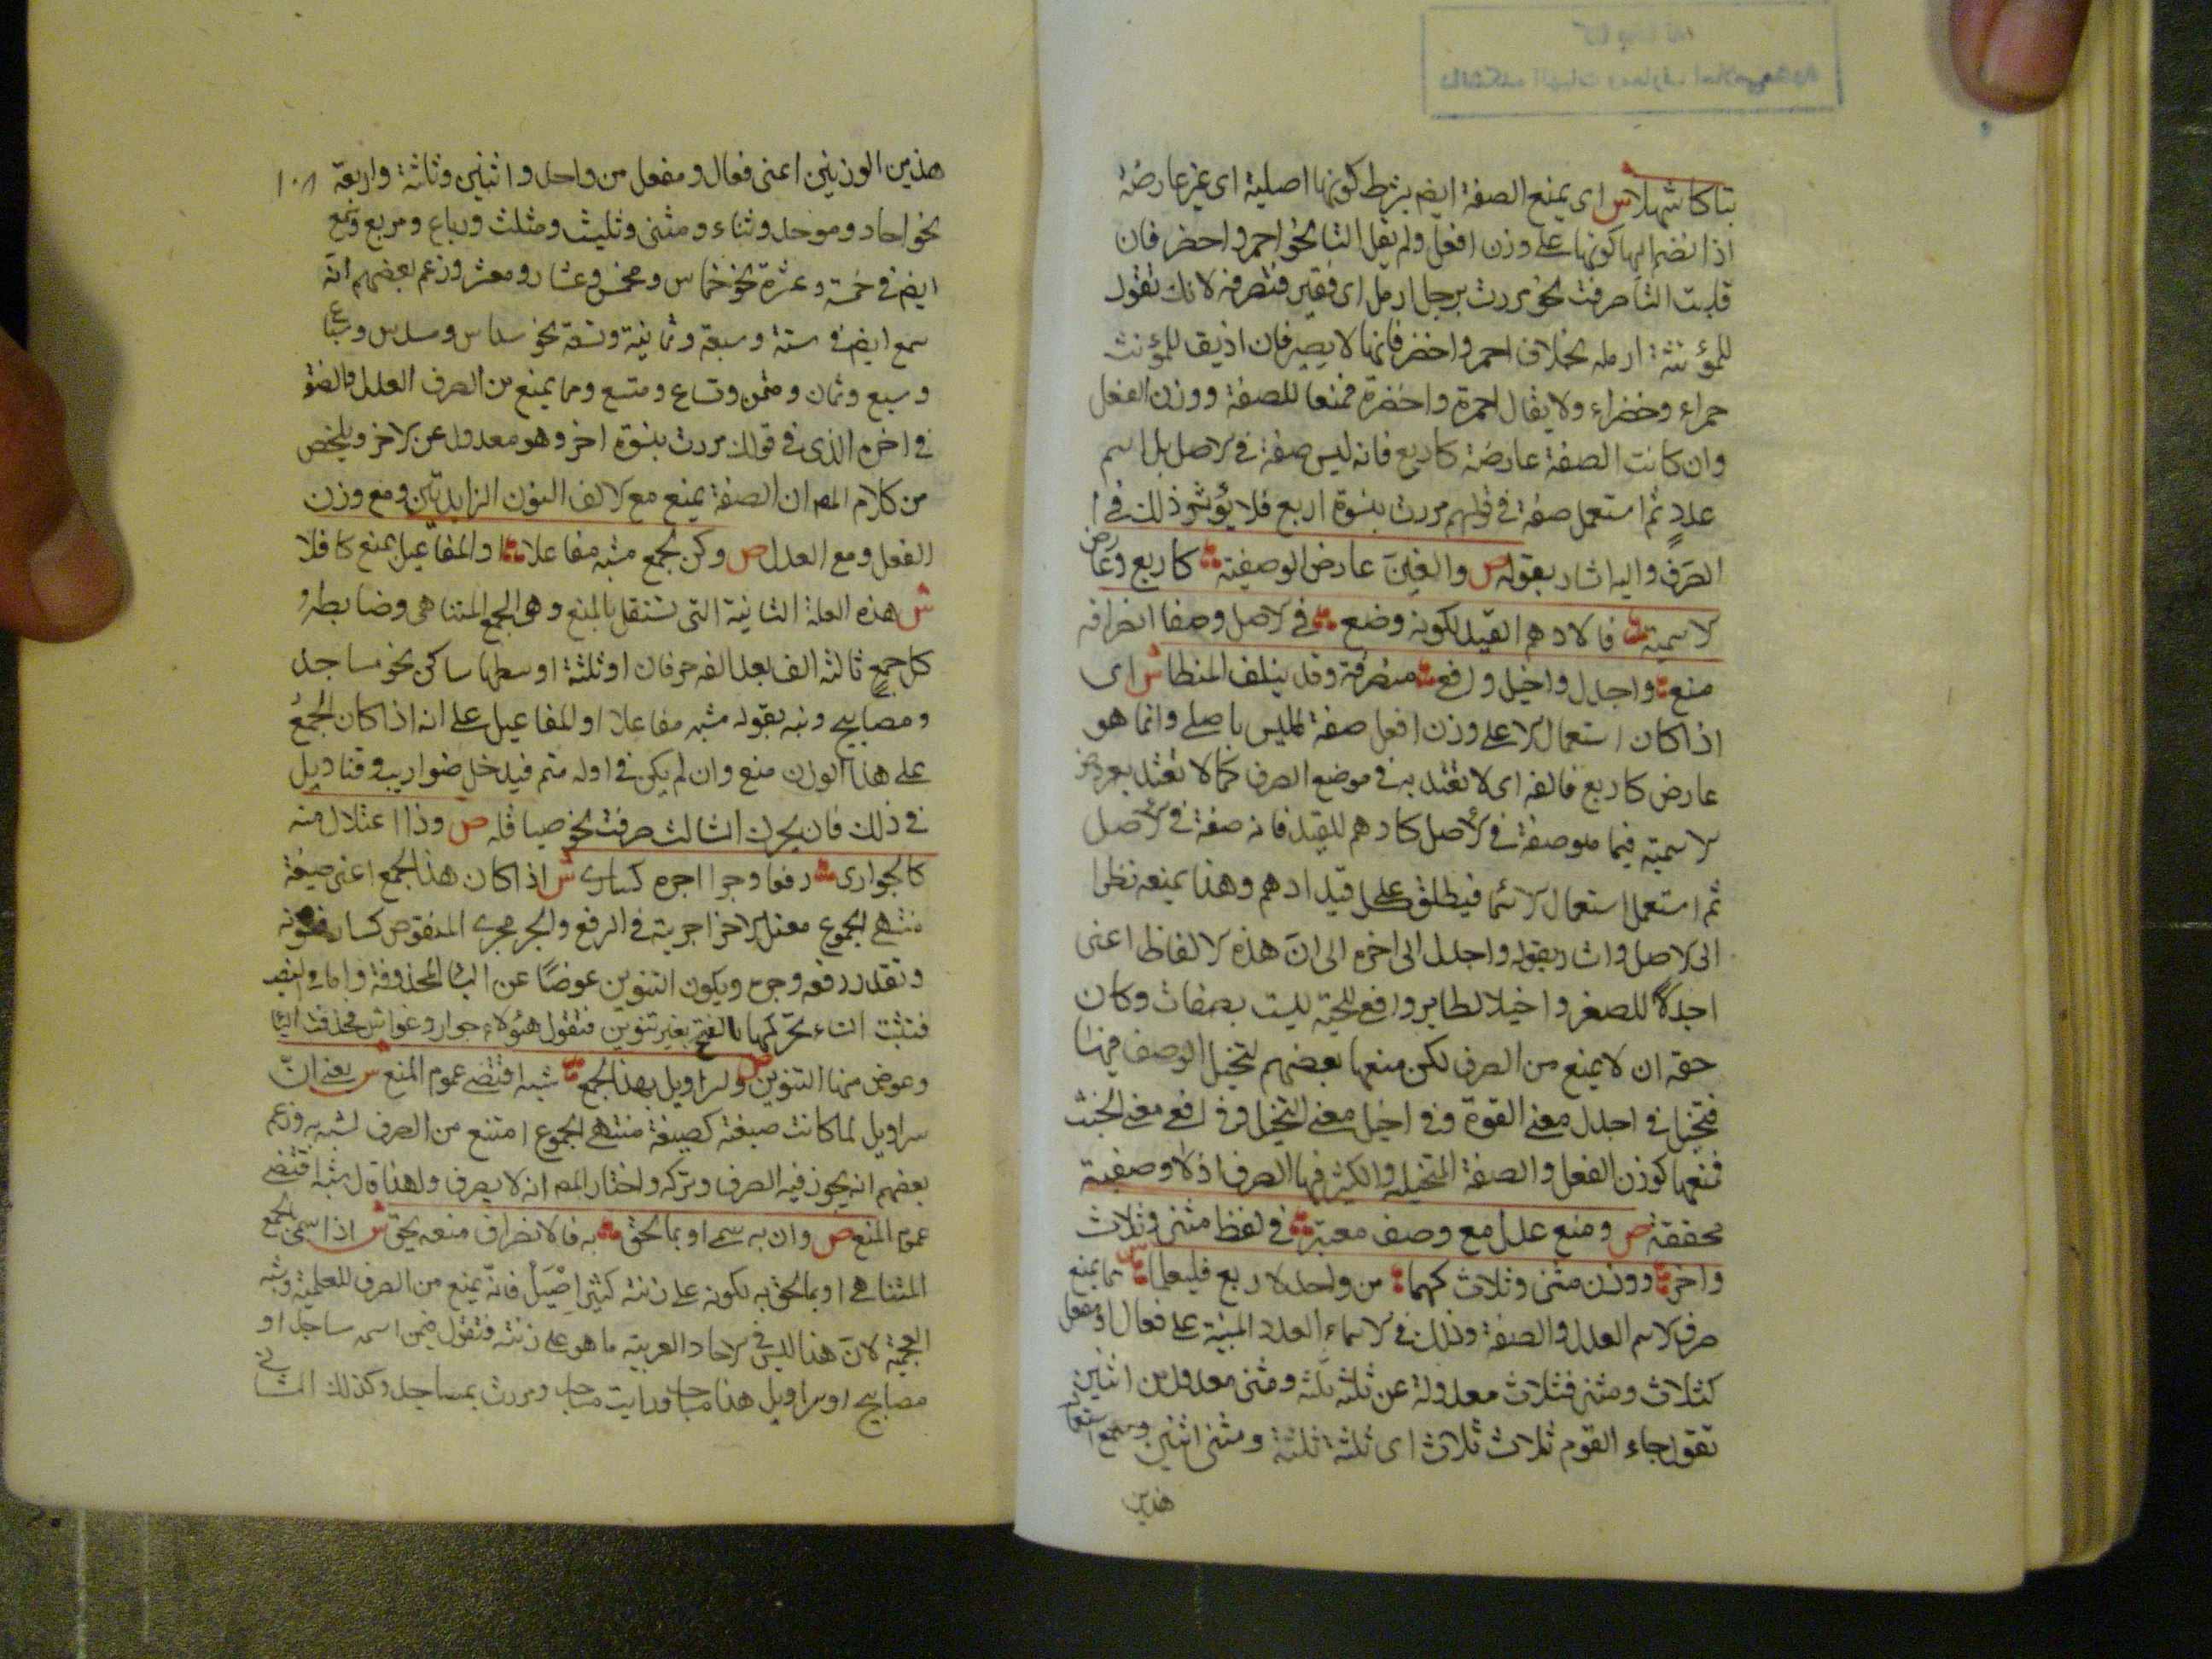 بتاكا شهلا ش اى يمنع الصفة ايضم بشرط كونها اصلية اى غير عارضة
اذا نضم اليها كونها على وزن افعل ولم يقبل التا نحو احمر واخضر فان
قلبت التا صرفت نحو مررت برجل ارمل اى فقير فتصرفه لانك تقول
للمؤنثة ارمله بخلاف احمر واخضر فانها لا يصير فان اذيق للمؤنث
حمراء وخضراء ولا يقال احمرة واخضرة فمنعا للصفة ووزن الفعل
وان كانت الصفة عارضة كاربع فانه ليس صفة فى لاصل بل اسم
عدد ثم استعمل صفة فى قولهم مررت بنسوة اربع فلا يؤثر ذلك فى ا
لصرف واليه اشار بقوله ص والغين عارض الوصفيته كاربع وعارض
لاسميته فالادهم القيد لكونه وضع فى لاصل وصفا انصرافه
منع واجدل واخيل وافع منصرفة وقد ينلف المنطا ش اى
اذا كان استعمال لا على وزن افعل صفة لماليس باصلى وانما هو
عارض كاربع فالغه اى لا تعتد به فى موضع الصرف كما لا تعتد بعروض
لاسمية فيما هو صفة فى لاصل كادهم للقيد فانه صفة فى لاصل
ثم استعمل استعمال لاسما فيطلق على كل قيد ادهم وهذا يمنعه نظرا
الى لاصل واشار بقوله واجدل الى اخره الى ان هذه لالفاظ اعنى
اجدلا للصغر واخيلا لطاير وافع للحية ليست بصفات وكان
حقه ان لا يمنع من الصرف لكن منعها بعضهم لتخيل الوصف فيها
فتخيل فى اجدل معنى القوة وفى اخيل معنى التخيل وفى افع معنى الخبث
فمنعها كوزن الفعل والصفة المتخيلة والكثير فيها الصرف اذ لا وصفية
محققة ص ومنع عدل مع وصف معتبر فى لفظ مثنى وثلاث
واخر ووزن مثنى وثلاث كهما من واحد لاربع فليعلما ش مما يمنع
صرف لاسم العدل والصفة وذلك فى لاسماء العدد المبنية على فعال او مفعل
كثلاث ومثنى فثلاث معدولة عن ثلثة ثلثة ومثنى معدول من اثنين
تقول جاء القوم ثلاث ثلاث اى ثلثة ثلثة ومثنى اثنين وسمع استعمال
هذين
١٠٨
هذين الوزنين اعنى فعال ومفعل من واحد واثنين وثلثة واربعة
نحو احاد وموحد وثناء ومثنى وثليث ومثلث ورباع ومربع وسمع
ايضم فى خمسة وعشرة نحو خماس ومخمس وعشار ومعشر وزعم بعضهم انه
سمع ايضم فى ستة وسبعة وثمانية وتسعة نحو سداس ومسدس وسباع
وسبع وثمان ومثمن وتساع ومتسع ومما يمنع من الصرف العدل والصفة
فى اخره الذى فى قولك مررت بنسوة اخر وهو معدول عن لاخر ويلخص
من كلام المص ان الصفة يمنع مع لالف النون الزايدتين ومع وزن
الفعل ومع العدل ص وكن لجمع مشبه مفاعلا والمفاعيل يمنع كافلا
ش هذه العلة الثانية التى تستقل بالمنع وهى الجمع المتناهى وضابطه
كل جمع ثالثه الف بعد الفه حرفان او ثلثة اوسطها ساكن نحو مساجد
ومصابيح ونبه بقوله مشبه مفاعلا او المفاعيل على انه اذا كان الجمع
على هذا الوزن منع وان لم يكن فى اوله متم فيدخل ضواريب وقناديل
فى ذلك فان يحرك الثالث صرفت نحو صياقله ص وذا اعتلال منه
كالجوارى رفعا وجرا اجره كسارى ش اذا كان هذا الجمع اعنى صيغة
منتهى الجموع معتل لاخر اجريته فى الرفع والجر مجرى المنقوص كسار فنونه
وتقدر رفعه وجره ويكون التنوين عوضا عن اليا المحذوفة واما فى النصب
فتثبت الياء تحركها بالفتح بغير تنوين فتقول هؤلاء جوار وغواش محذفت اليا
وعوض منها التنوين ص ولسراويل بهذا الجمع شبه اقتضى عموم المنع ش يعنى ان
سراويل لما كانت صيغته كصيغة منتهى الجموع امتنع من الصرف لشبهه وزعم
بعضهم انه يجوز فيه الصرف وتركه واختار المص انه لا يصرف ولهذا قال شبه اقتضى
عموم المنع ص وان به سمى او بما لحق به فالانصراف منعه يحق ش اذا سمى بالجمع
المتناهى او بما لحق به لكونه على زنته كشراحيل فانه يمنع من الصرف للعلمية وشبه
العجمة لان هذا ليس فى لاحاد العربية ما هو على زنته فتقول فيمن اسمه مساجد او
مصابيح او سراويل هذا مساجد ورايت مساجد ومررت بمساجد وكذلك الباقى